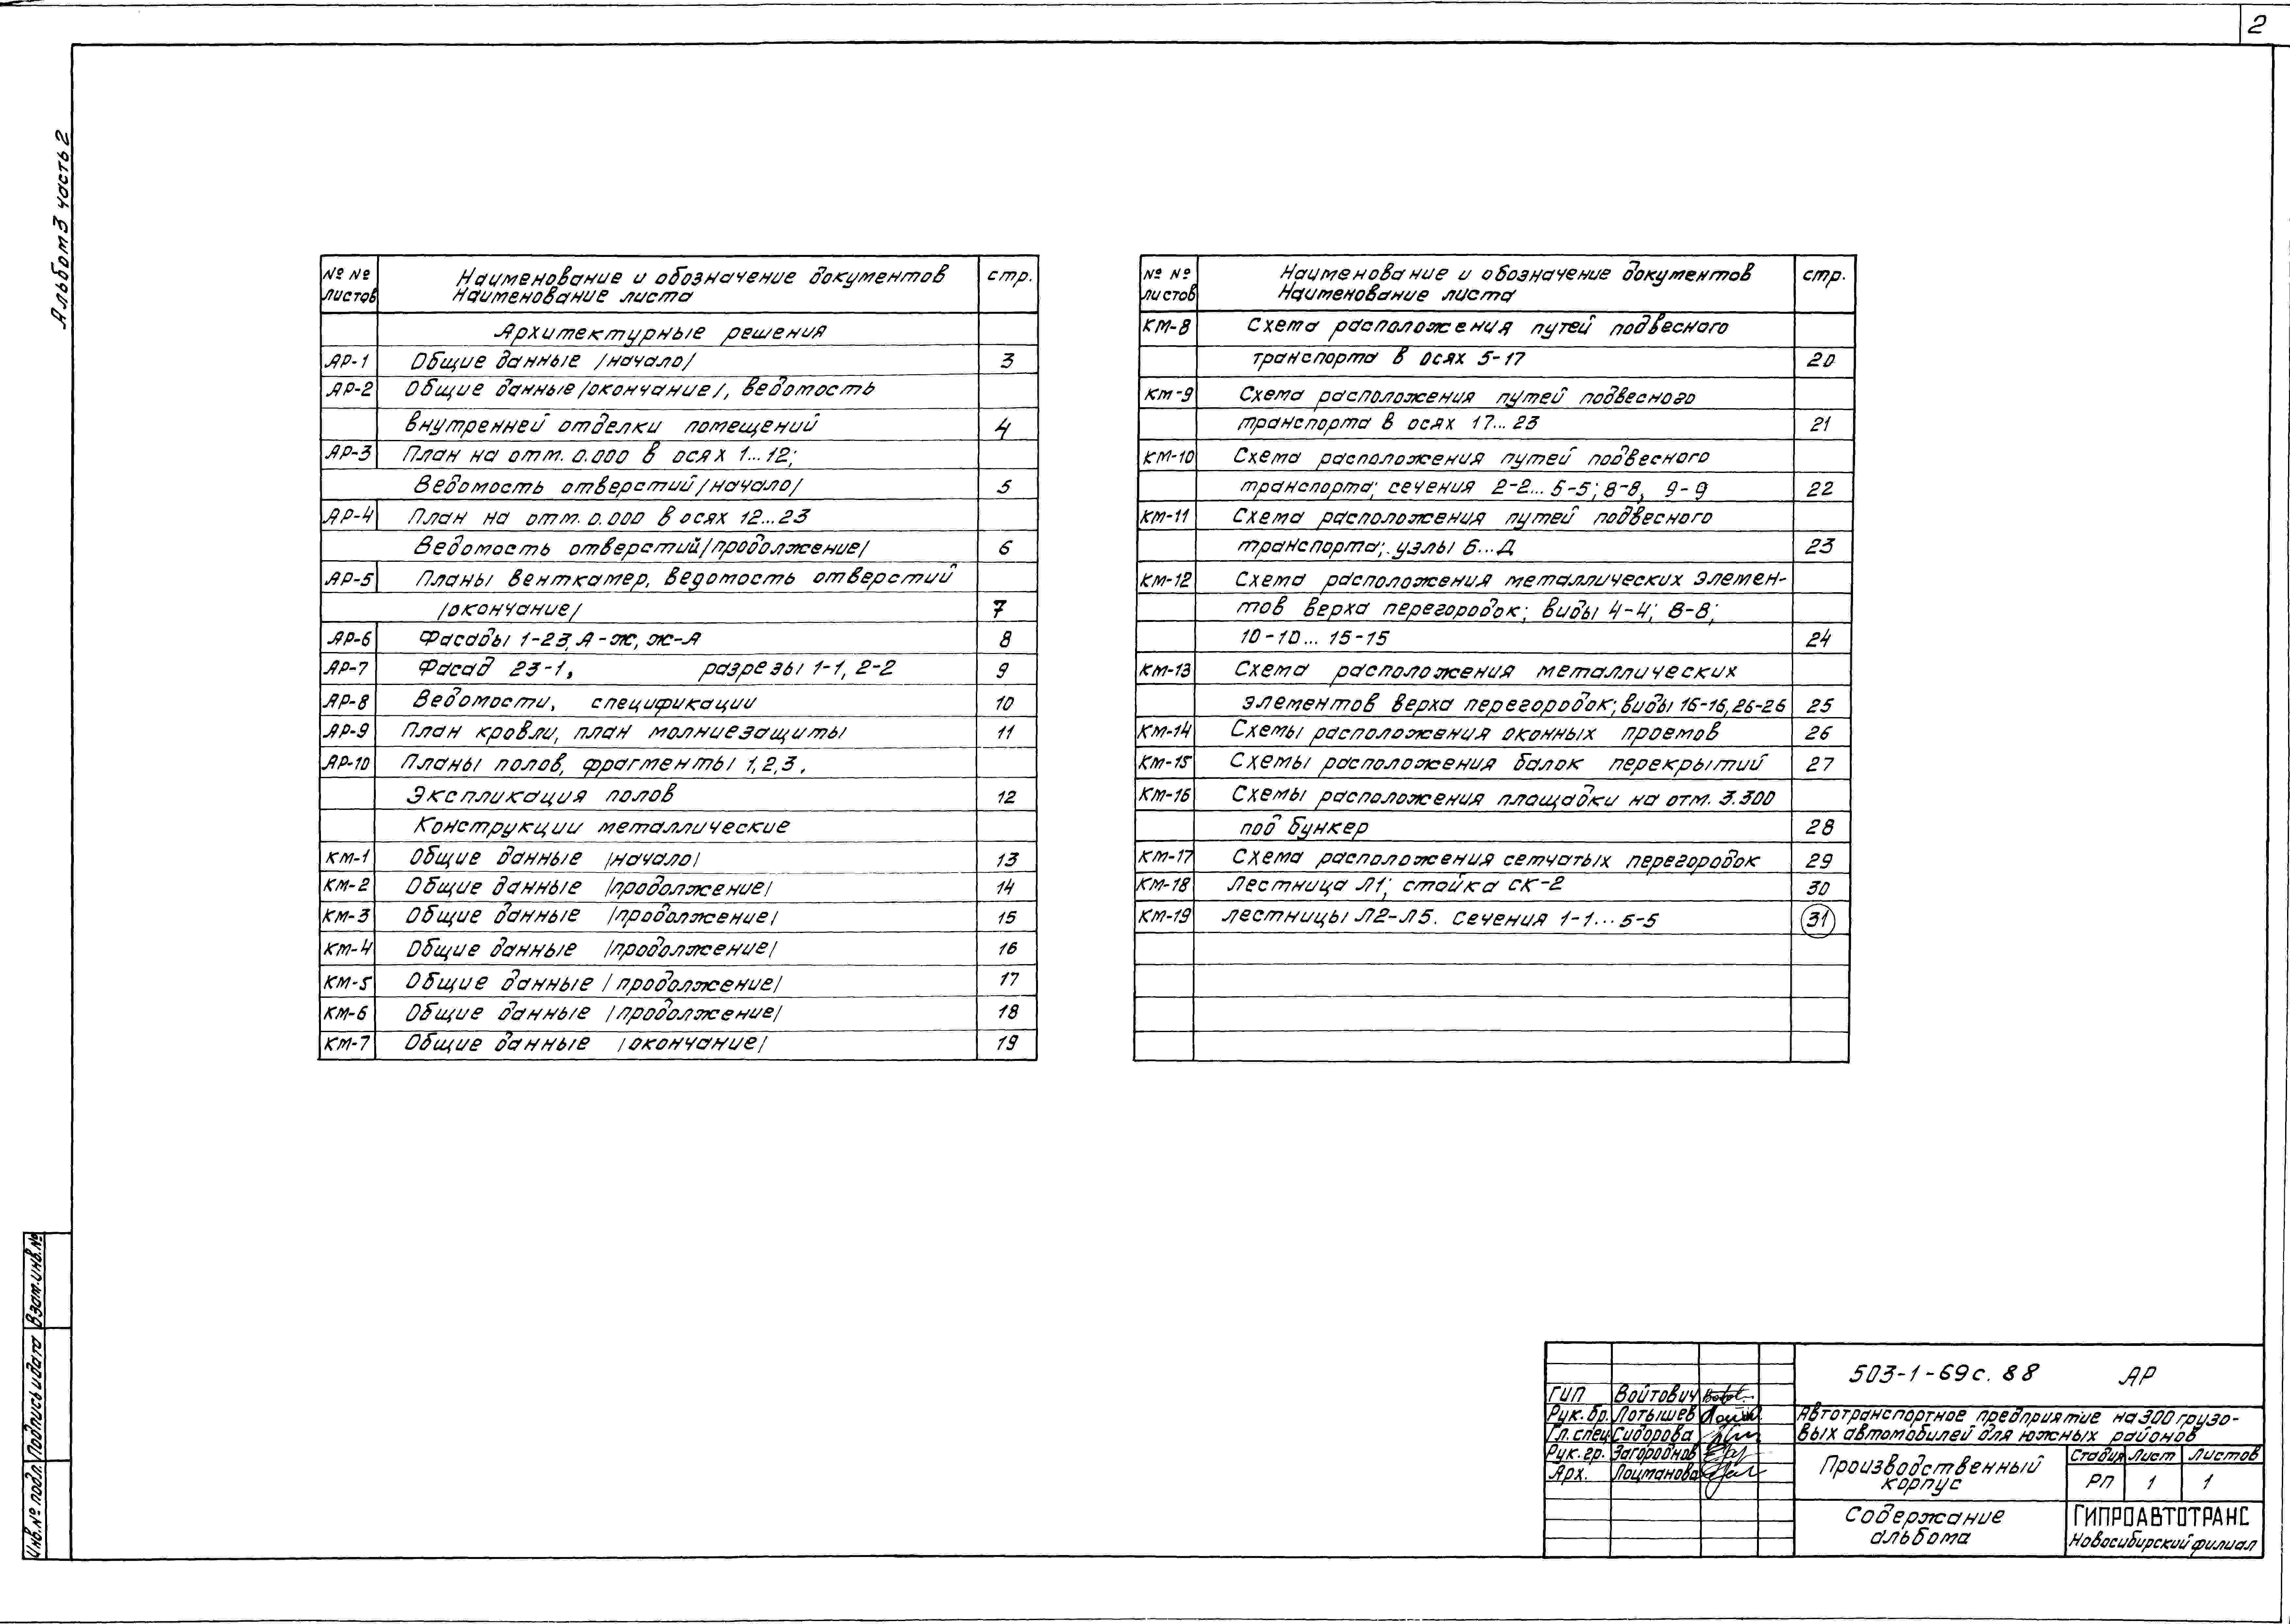 2
Альбом 3 часть 2
№ № листов Наименование и обозначение документов Наименование листа стр.
Архитектурные решения
АР-1 Общие данные /начало/ 3
АР-2 Общие данные /окончание/, ведомость
внутренней отделки помещений 4
АР-3 План на отм. 0.000 в осях 1...12;
Ведомость отверстий /начало/ 5
АР-4 План на отм. 0.000 в осях 12...23
Ведомость отверстий /продолжение/ 6
АР-5 Планы венткамер, ведомость отверстий
/окончание/ 7
АР-6 Фасады 1-23, А-Ж, Ж-А 8
АР-7 Фасад 23-1, разрезы 1-1, 2-2 9
АР-8 Ведомости, спецификации 10
АР-9 План кровли, план молниезащиты 11
АР-10 Планы полов, фрагменты 1,2,3.
Экспликация полов 12
Конструкции металлические
КМ-1 Общие данные /начало/ 13
КМ-2 Общие данные /продолжение/ 14
КМ-3 Общие данные /продолжение/ 15
КМ-4 Общие данные /продолжение/ 16
КМ-5 Общие данные /продолжение/ 17
КМ-6 Общие данные /продолжение/ 18
КМ-7 Общие данные /окончание/ 19
№ № листов Наименование и обозначение документов Наименование листа стр.
КМ-8 Схема расположения путей подвесного
транспорта в осях 5-17 20
КМ-9 Схема расположения путей подвесного
транспорта в осях 17...23 21
КМ-10 Схема расположения путей подвесного
транспорта; сечения 2-2...5-5; 8-8, 9-9 22
КМ-11 Схема расположения путей подвесного
транспорта; узлы Б...Д 23
КМ-12 Схема расположения металлических элемен-
тов верха перегородок; виды 4-4; 8-8;
10-10...15-15 24
КМ-13 Схема расположения металлических
элементов верха перегородок; виды 16-16, 26-26 25
КМ-14 Схемы расположения оконных проемов 26
КМ-15 Схемы расположения балок перекрытий 27
КМ-16 Схемы расположения площадки на отм. 3.300
под бункер 28
КМ-17 Схема расположения сетчатых перегородок 29
КМ-18 Лестница Л1; стойка СК-2 30
КМ-19 Лестницы Л2-Л5. Сечения 1-1...5-5 31
Взам.инв.№
Подпись и дата
Инв.№ подл.
503-1-69с.88 АР
ГИП Войтович
Рук.бр. Лотышев
Гл.спец Сидорова
Рук.гр. Загороднов
Арх. Лоцманова
Автотранспортное предприятие на 300 грузо-
вых автомобилей для южных районов
Производственный
корпус
Стадия Лист Листов
РП 1 1
Содержание
альбома
ГИПРОАВТОТРАНС
Новосибирский филиал